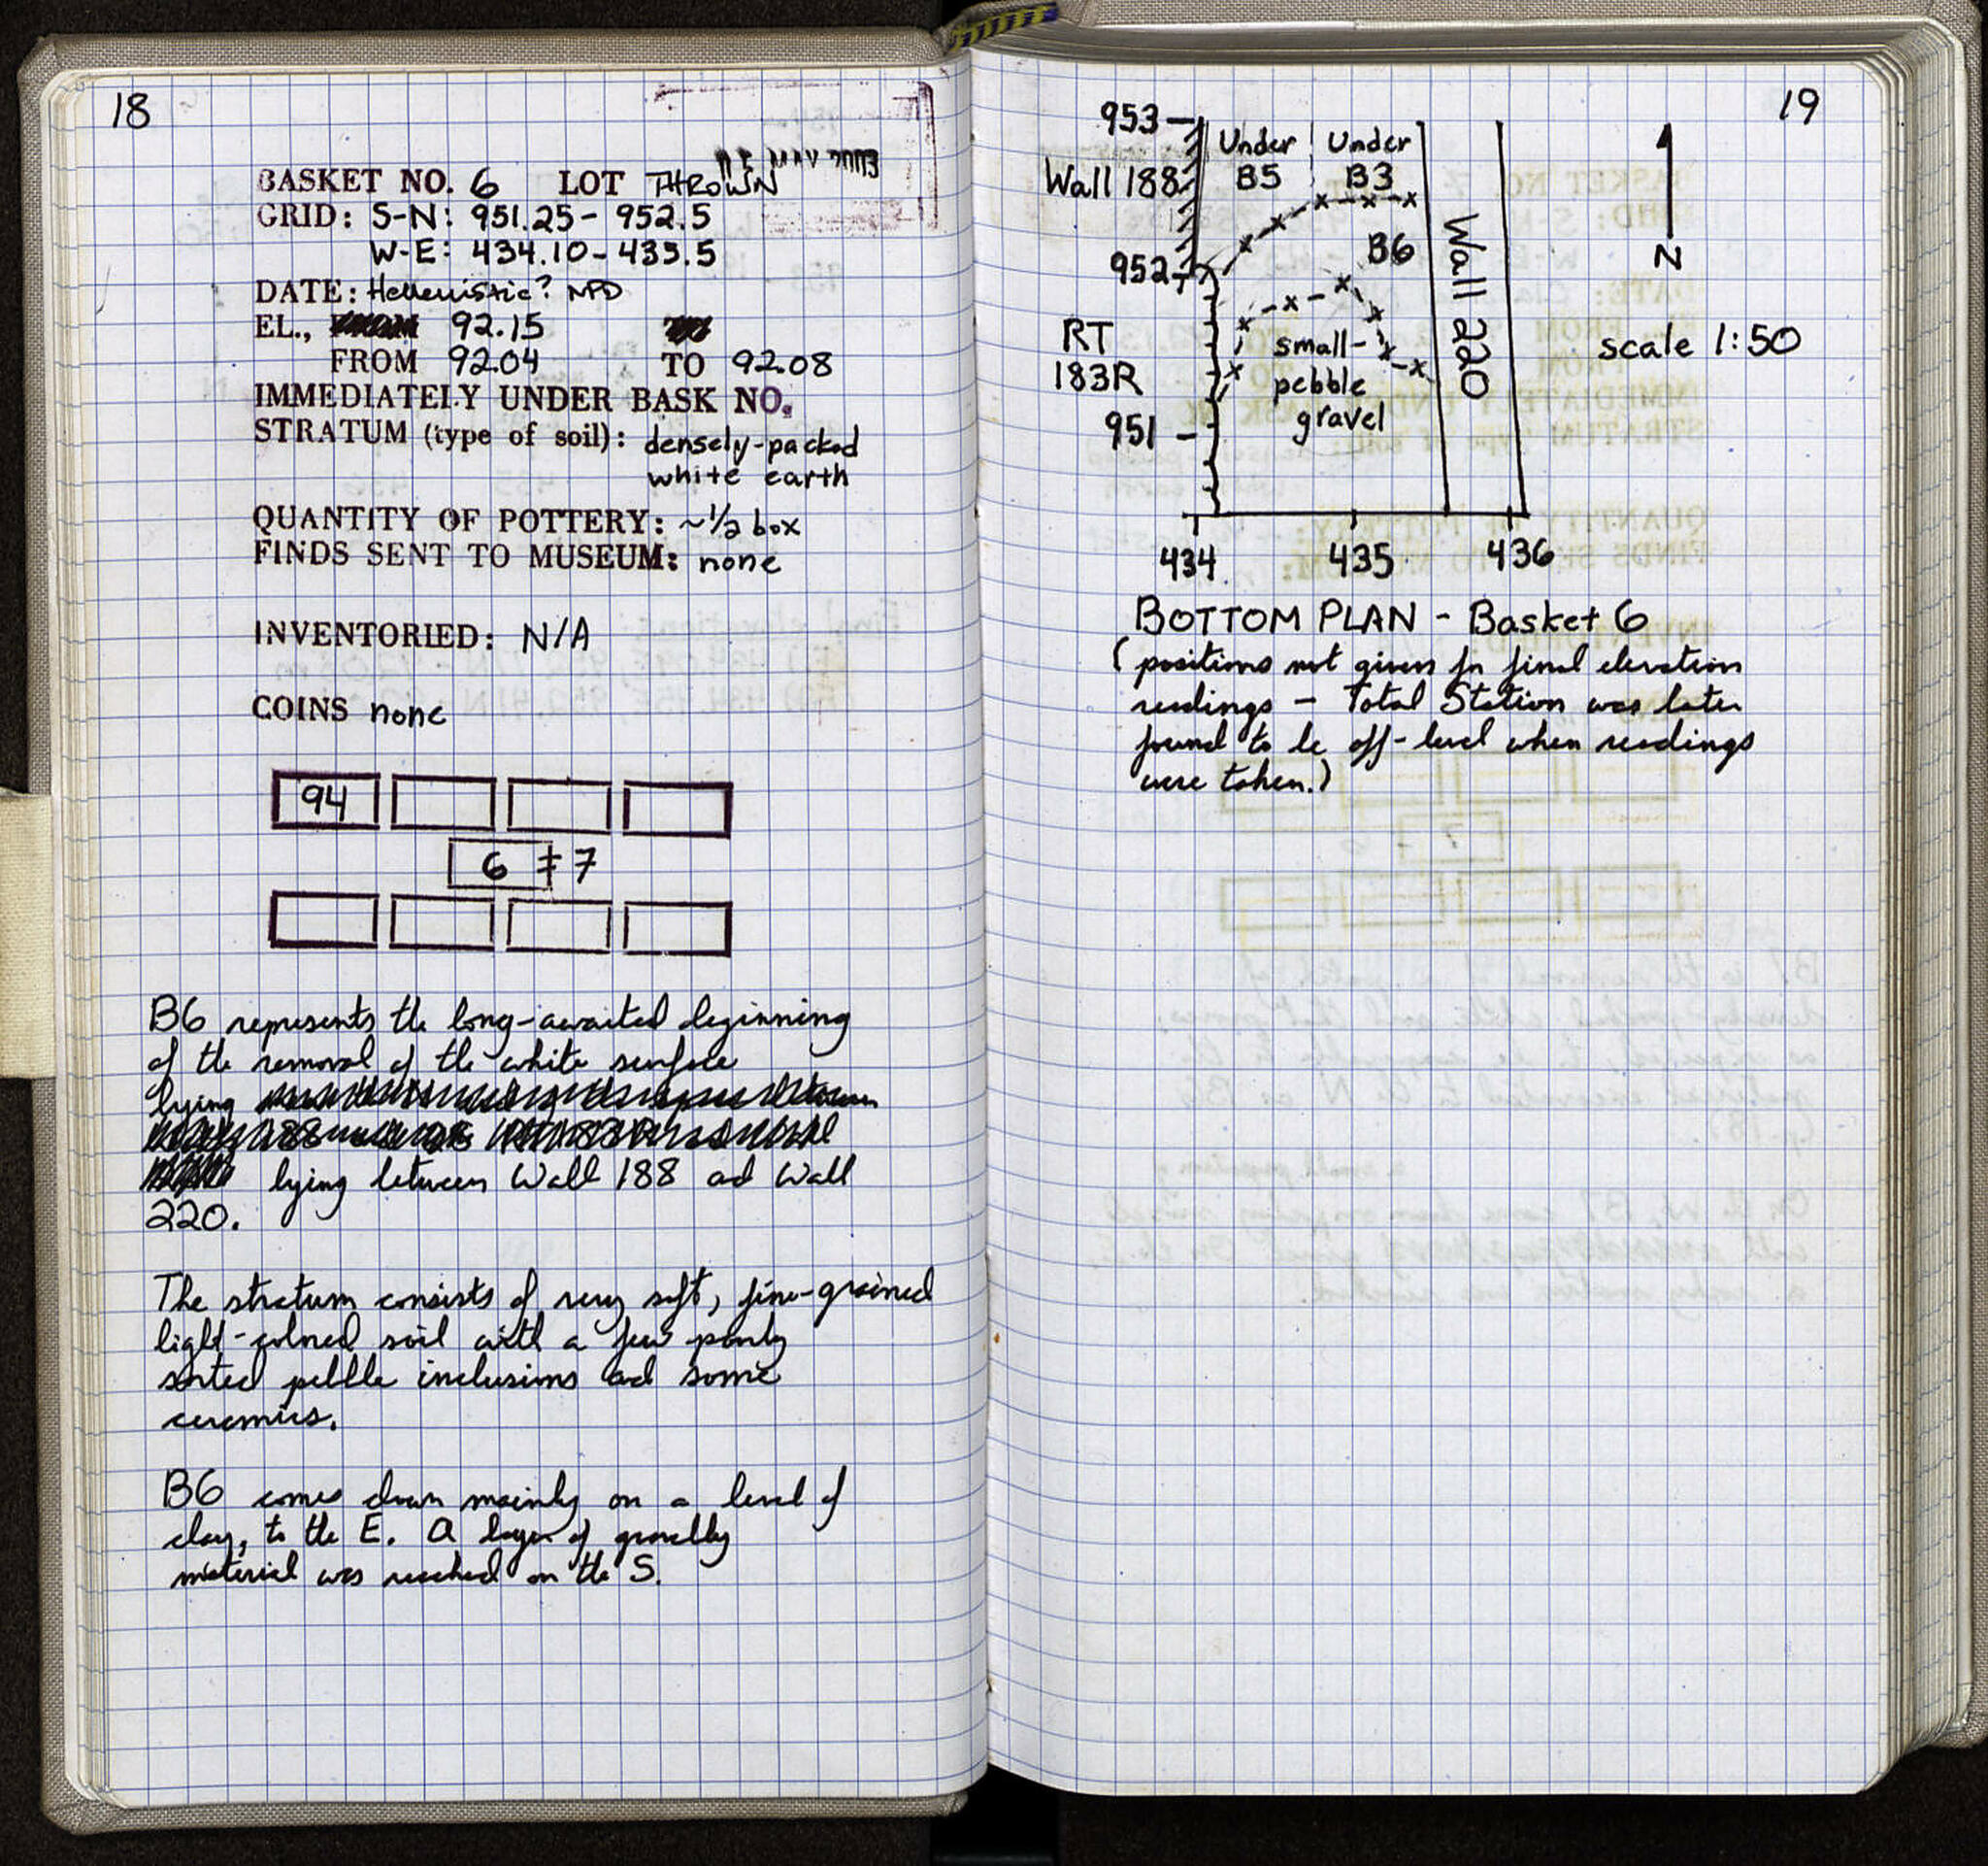 18
MAY 2003
BASKET NO. 6 LOT THROWN
GRID: S-N: 951.25 - 952.5
W-E: 434.10 - 435.5
DATE: Hellenistic? NPD
EL., 92.15
FROM 92.04 TO 92.08
IMMEDIATELY UNDER BASK NO.
STRATUM (type of soil): densely-packed
white earth
QUANTITY OF POTTERY: ~1/2 box
FINDS SENT TO MUSEUM: none
INVENTORIED: N/A
COINS none
94
6 ‡ 7
B6 represents the long-awaited beginning
of the removal of the white surface
lying
lying between Wall 188 ad Wall
220.
The stratum consists of very soft, fine-grained
light-colored soil with a few poorly
sorted pebble inclusions ad some
ceramics.
B6 comes down mainly on a level of
clay, to the E. A layer of gravelly
material was reached on the S.
19
953
Under Under
Wall 188 B5 B3
B6
952
Wall 220
N
RT
183R
small-
pebble
gravel
scale 1:50
951
434 435 436
BOTTOM PLAN - Basket 6
(positions not given for final elevation
readings - Total Station was later
found to be off-level when readings
were taken.)